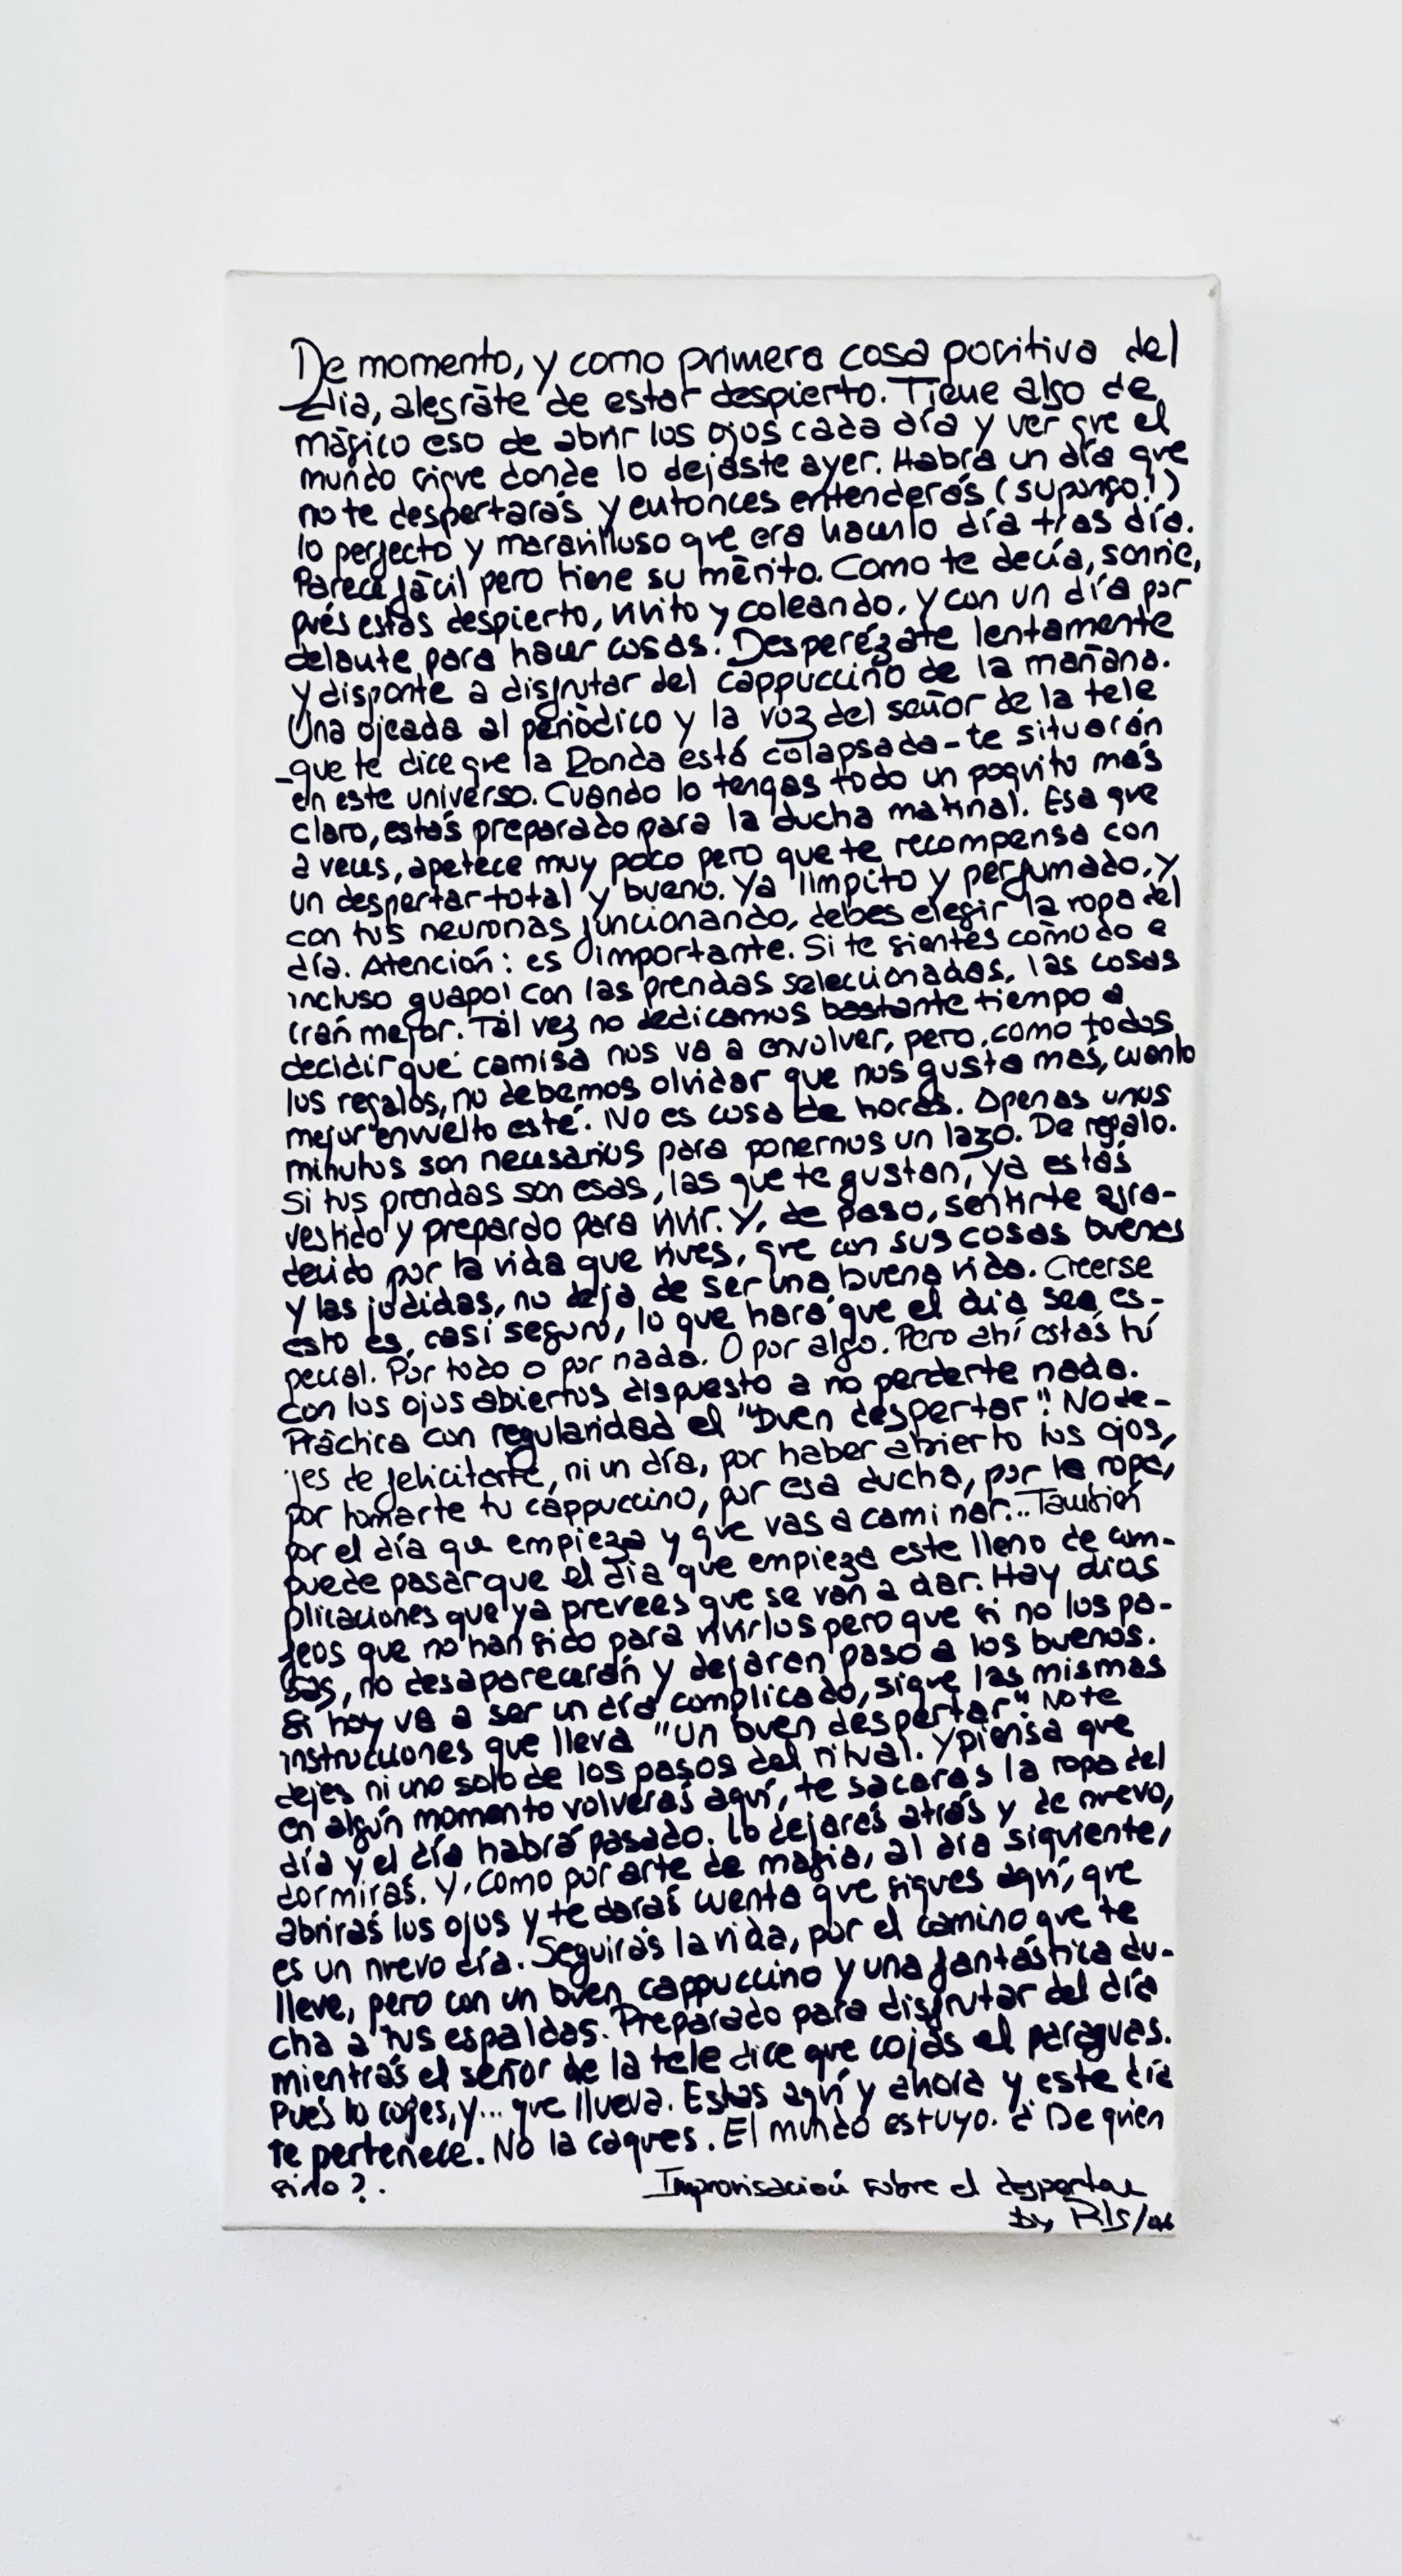 De momento, y como primera cosa positiva del
día, alegráte de estar despierto. Tiene algo de
mágico eso de abrir los ojos cada día y ver que el
mundo sigue donde lo dejaste ayer. Habrá un día que
no te despertarás y entonces entenderás (supongo!)
lo perfecto y maravilloso que era hacerlo día tras día.
Parece fácil pero tiene su mérito. Como te decía, sonrie,
pués estás despierto, vivito y coleando, y con un día por
delante para hacer cosas. Desperézate lentamente
y disponte a disfrutar del cappuccino de la mañana.
Una ojeada al periódico y la voz del señor de la tele
-que te dice que la Ronda está colapsada- te situarán
en este universo. Cuando lo tengas todo un poquito más
claro, estás preparado para la ducha matinal. Esa que
a veces, apetece muy poco pero que te recompensa con
un despertar total y bueno. Ya limpito y perfumado, y
con tus neuronas funcionando, debes elegir la ropa del
día. Atención: es importante. Si te sientes cómodo e
incluso guapo! con las prendas seleccionadas, las cosas
irán mejor. Tal vez no dedicamos bastante tiempo a
decidir qué camisa nos va a envolver, pero, como todos
los regalos, no debemos olvidar que nos gusta más, cuanto
mejor envuelto esté. No es cosa de horas. Apenas unos
minutos son necesarios para ponernos un lazo. De regalo.
Si tus prendas son esas, las que te gustan, ya estás
vestido y prepardo para vivir. Y, de paso, sentirte agra-
decido por la vida que vives, que con sus cosas buenas
y las jodidas, no deja de ser una buena vida. Creerse
esto es, casi seguro, lo que hará que el día sea es-
pecial. Por todo o por nada. O por algo. Pero ahí estás tú
con los ojos abiertos dispuesto a no perderte nada.
Práctica con regularidad el "buen despertar". No de-
jes de felicitarte, ni un día, por haber abierto los ojos,
por tomarte tu cappuccino, por esa ducha, por la ropa,
por el día que empieza y que vas a caminar... También
puede pasar que el día que empieza este lleno de com-
plicaciones que ya prevees que se van a dar. Hay días
feos que no han sido para vivirlos pero que si no los pa-
sas, no desaparecerán y dejaran paso a los buenos.
Si hoy va a ser un día complicado, sigue las mismas
instrucciones que lleva "Un buen despertar". No te
dejes ni uno solo de los pasos del ritual. Y piensa que
en algún momento volverás aquí, te sacarás la ropa del
día y el día habrá pasado. Lo dejarás atrás y de nuevo,
dormirás. Y, como por arte de magia, al día siguiente,
abrirás los ojos y te darás cuenta que sigues aquí, que
es un nuevo día. Seguirás la vida, por el camino que te
lleve, pero con un buen cappuccino y una fantástica du-
cha a tus espaldas. Preparado para disfrutar del día
mientras el señor de la tele dice que cojas el paraguas.
Pues lo coges, y... que llueva. Estás aquí y ahora y este día
te pertenece. No la cagues. El mundo es tuyo. ¿De quien
sino?.
Improvisación sobre el despertar
by RIS/06